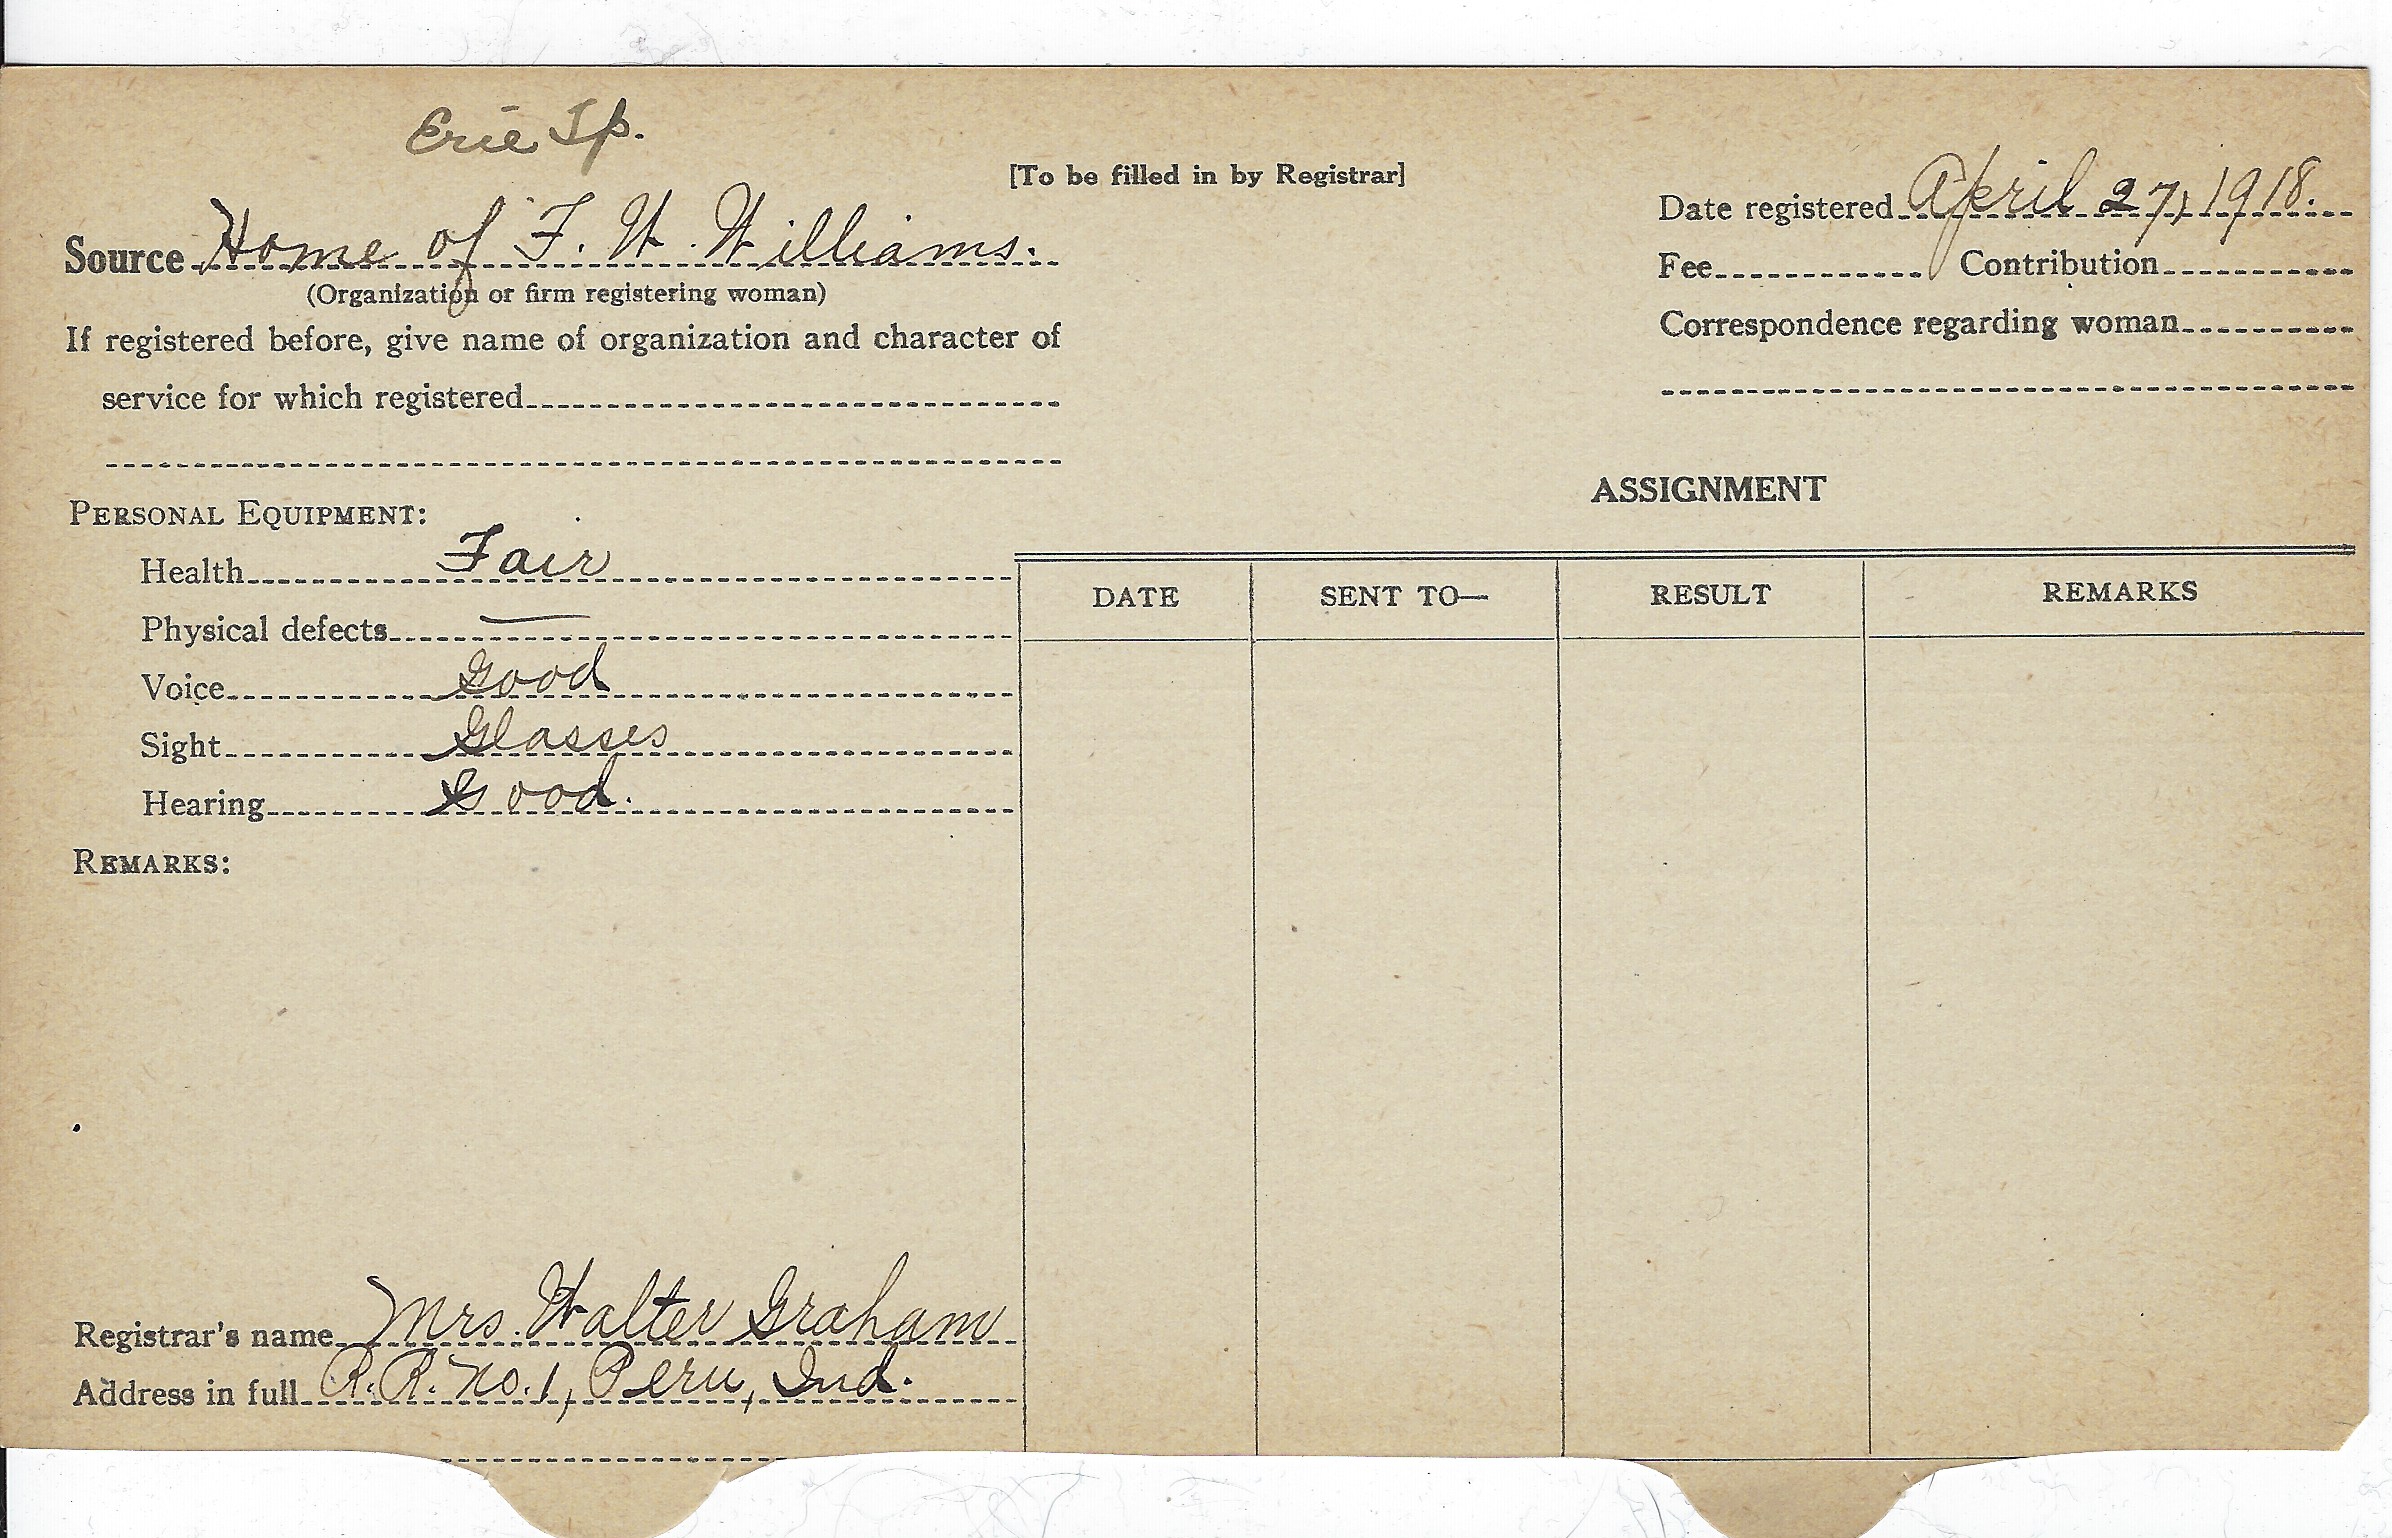 Erie Tp.
[To be filled in by Registrar]
Source Home of F. W. Williams.
(Organization or firm registering woman)
If registered before, give name of organization and character of
service for which registered
Date registered April 27, 1918.
Fee Contribution
Correspondence regarding woman
PERSONAL EQUIPMENT:
Health Fair
Physical defects —
Voice Good
Sight Glasses
Hearing Good.
REMARKS:
Registrar's name Mrs. Walter Graham
Address in full R. R. No. 1, Peru, Ind.
ASSIGNMENT
DATE SENT TO— RESULT REMARKS